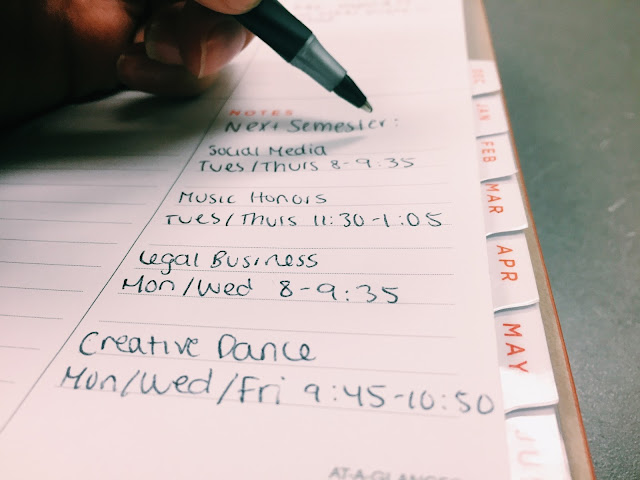 NOTES
Next Semester:
Social Media
Tues/Thurs 8-9:35
Music Honors
Tues/Thurs 11:30-1:05
Legal Business
Mon/Wed 8-9:35
Creative Dance
Mon/Wed/Fri 9:45-10:50
AT-A-GLANCE
DEC
JAN
FEB
MAR
APR
MAY